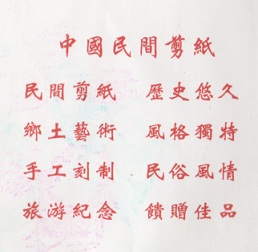 中國民間剪紙
民間剪紙 歷史悠久
鄉土藝術 風格獨特
手工刻制 民俗風情
旅游紀念 饋贈佳品